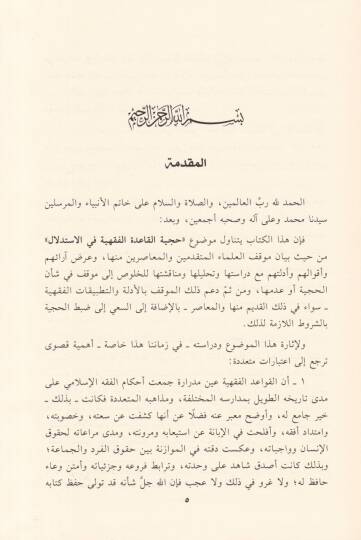 بسم الله الرحمن الرحيم
المقدمة
الحمد لله ربِّ العالمين، والصلاة والسلام على خاتم الأنبياء والمرسلين
سيدنا محمد وعلى آله وصحبه أجمعين، وبعد:
فإن هذا الكتاب يتناول موضوع «حجية القاعدة الفقهية في الاستدلال»
من حيث بيان موقف العلماء المتقدمين والمعاصرين منها، وعرض آرائهم
وأقوالهم وأدلتهم مع دراستها وتحليلها ومناقشتها للخلوص إلى موقف في شأن
الحجية أو عدمها، ومن ثمّ دعم ذلك الموقف بالأدلة والتطبيقات الفقهية
ـ سواء في ذلك القديم منها والمعاصر ـ بالإضافة إلى السعي إلى ضبط الحجية
بالشروط اللازمة لذلك.
ولإثارة هذا الموضوع ودراسته ـ في زماننا هذا خاصة ـ أهمية قصوى
ترجع إلى اعتبارات متعددة:
١ ـ أن القواعد الفقهية عين مدرارة جمعت أحكام الفقه الإسلامي على
مدى تاريخه الطويل بمدارسه المختلفة، ومذاهبه المتعددة فكانت ـ بذلك ـ
خير جامع له، وأوضح معبر عنه فضلًا عن أنها كشفت عن سعته، وخصوبته،
وامتداد أفقه، وأفلحت في الإبانة عن استيعابه ومرونته، ومدى مراعاته لحقوق
الإنسان وواجباته، وعكست دقته في الموازنة بين حقوق الفرد والجماعة؛
وبذلك كانت أصدق شاهد على وحدته، وترابط فروعه وجزئياته وأمتن وعاء
حافظ له؛ ولا غرو في ذلك ولا عجب فإن الله جلَّ شأنه قد تولى حفظ كتابه
٥